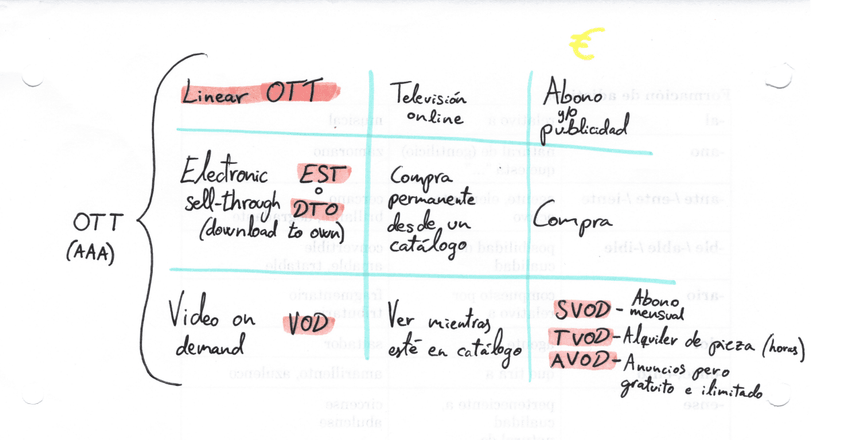 €
OTT
(AAA)
Linear OTT
Televisión
online
Abono
y/o
publicidad
Electronic EST
o
sell-through DTO
(download to own)
Compra
permanente
desde un
catálogo
Compra
Video on VOD
demand
Ver mientras
esté en catálogo
SVOD - Abono
mensual
TVOD - Alquiler de pieza (horas)
AVOD - Anuncios pero
gratuito e ilimitado